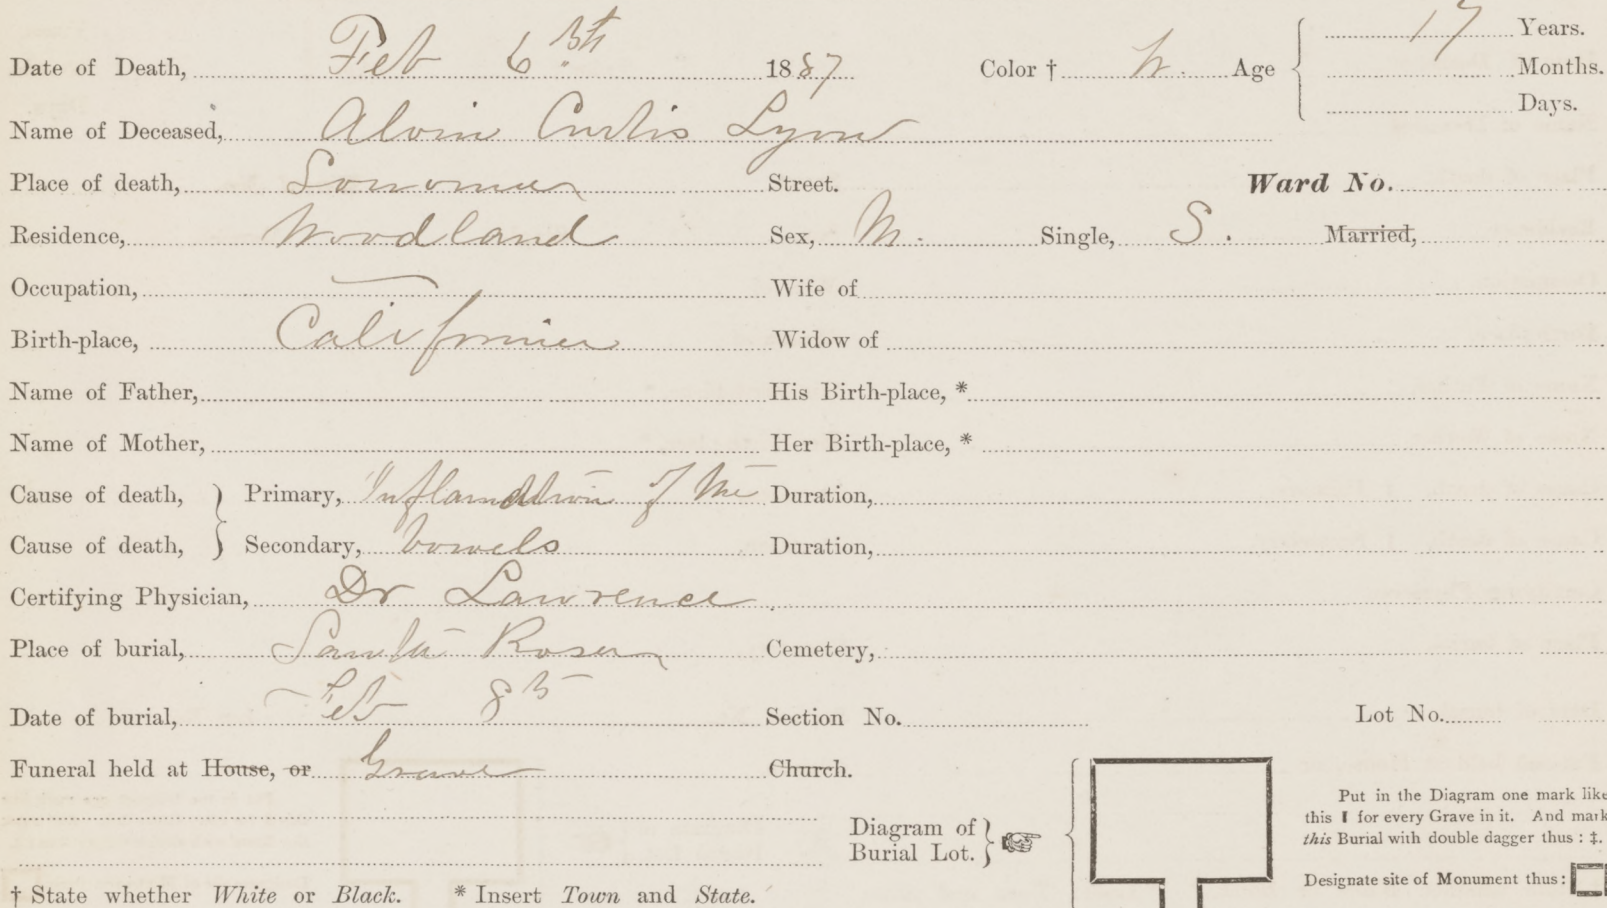 Date of Death, Feb 6th 1887 Color † W. Age 17 Years.
Months.
Days.
Name of Deceased, Alvin Curtis Lyon
Place of death, Sonoma Street. Ward No.
Residence, Woodland Sex, M. Single, S. Married,
Occupation, Wife of
Birth-place, California Widow of
Name of Father, His Birth-place, *
Name of Mother, Her Birth-place, *
Cause of death, Primary, Inflamation of the Duration,
Cause of death, Secondary, bowels Duration,
Certifying Physician, Dr Lawrence
Place of burial, Santa Rosa Cemetery,
Date of burial, Feb 8th Section No. Lot No.
Funeral held at House, or Grave Church.
Diagram of
Burial Lot.
Put in the Diagram one mark like
this I for every Grave in it. And mark
this Burial with double dagger thus : ‡.
Designate site of Monument thus :
† State whether White or Black. * Insert Town and State.